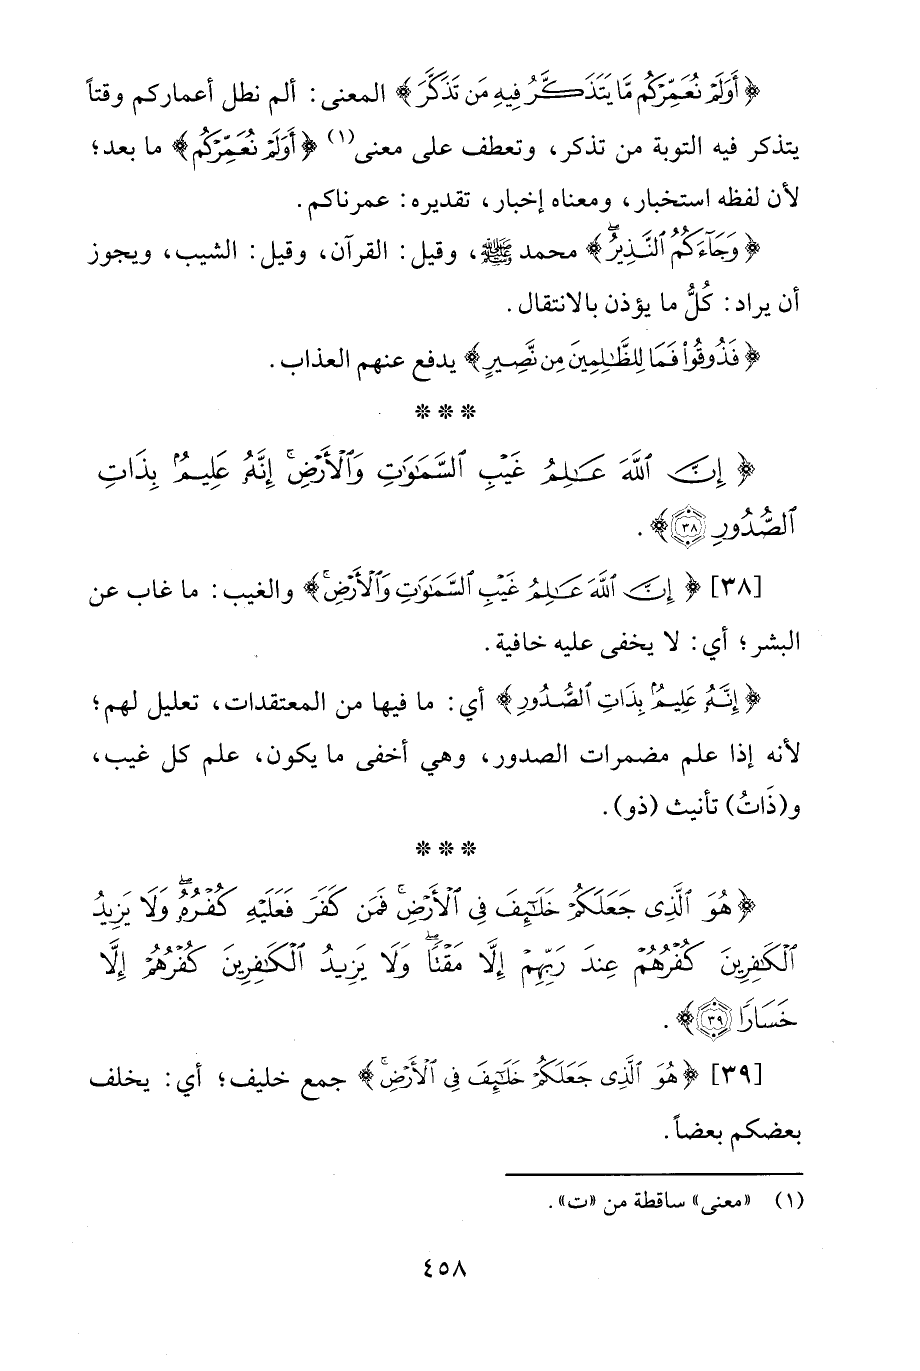 ﴿أَوَلَمْ نُعَمِّرْكُم مَّا يَتَذَكَّرُ فِيهِ مَن تَذَكَّرَ﴾ المعنى: ألم نطل أعماركم وقتاً
يتذكر فيه التوبة من تذكر، وتعطف على معنى(١) ﴿أَوَلَمْ نُعَمِّرْكُم﴾ ما بعد؛
لأن لفظه استخبار، ومعناه إخبار، تقديره: عمرناكم.
﴿وَجَآءَكُمُ ٱلنَّذِيرُۖ﴾ محمد ﷺ، وقيل: القرآن، وقيل: الشيب، ويجوز
أن يراد: كُلُّ ما يؤذن بالانتقال.
﴿فَذُوقُوا۟ فَمَا لِلظَّـٰلِمِينَ مِن نَّصِيرٍ﴾ يدفع عنهم العذاب.
* * *
﴿إِنَّ ٱللَّهَ عَـٰلِمُ غَيْبِ ٱلسَّمَـٰوَٰتِ وَٱلْأَرْضِۚ إِنَّهُۥ عَلِيمٌۢ بِذَاتِ
ٱلصُّدُورِ ٣٨﴾.
[٣٨] ﴿إِنَّ ٱللَّهَ عَـٰلِمُ غَيْبِ ٱلسَّمَـٰوَٰتِ وَٱلْأَرْضِۚ﴾ والغيب: ما غاب عن
البشر؛ أي: لا يخفى عليه خافية.
﴿إِنَّهُۥ عَلِيمٌۢ بِذَاتِ ٱلصُّدُورِ﴾ أي: ما فيها من المعتقدات، تعليل لهم؛
لأنه إذا علم مضمرات الصدور، وهي أخفى ما يكون، علم كل غيب،
و(ذَاتُ) تأنيث (ذو).
* * *
﴿هُوَ ٱلَّذِى جَعَلَكُمْ خَلَـٰٓئِفَ فِى ٱلْأَرْضِۚ فَمَن كَفَرَ فَعَلَيْهِ كُفْرُهُۥۖ وَلَا يَزِيدُ
ٱلْكَـٰفِرِينَ كُفْرُهُمْ عِندَ رَبِّهِمْ إِلَّا مَقْتًاۖ وَلَا يَزِيدُ ٱلْكَـٰفِرِينَ كُفْرُهُمْ إِلَّا
خَسَارًا ٣٩﴾.
[٣٩] ﴿هُوَ ٱلَّذِى جَعَلَكُمْ خَلَـٰٓئِفَ فِى ٱلْأَرْضِۚ﴾ جمع خليف؛ أي: يخلف
بعضكم بعضاً.
(١) «معنى» ساقطة من «ت».
٤٥٨